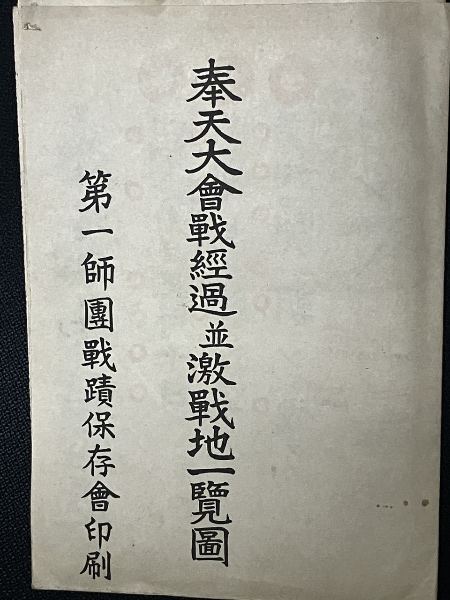 奉天大會戰經過並激戰地一覽圖
第一師團戰蹟保存會印刷